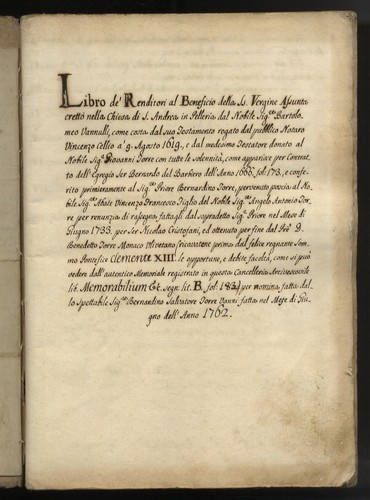 Libro de' Renditori al Beneficio della Ss. Vergine Assunta
eretto nella Chiesa di S. Andrea in Pelleria dal Nobile Sig.re Bartolo-
meo Vannulli, come costa dal suo Testamento rogato dal pubblico Notaro
Vincenzo Cellio a' 9. Agosto 1619, e dal medesimo Testatore donato al
Nobile Sig.re Giovanni Torre con tutte le solennità, come apparisce per Contrat-
to dell'Egregio Ser Bernardo del Barbero dell'Anno fol. 173, e confe-
rito primieramente al Sig.re Priore Bernardino Torre, pervenuto poscia al No-
bile Sig.re Abate Vincenzo Francesco Figlio del Nobile Sig.re Angelo Antonio Tor-
re per renunzia di rafegna fattagli dal sopradetto Sig.re Priore nel Mese di
Giugno 1733. per Ser Nicolao Cristofani, ed ottenuto per fine dal Pre D.
Benedetto Torre Monaco Olivetano ricavatone prima dal felice regnante Som-
mo Pontefice Clemente XIII. le opportune, e debite facoltà, come si può
vedere dall'autentico Memoriale registrato in questa Cancelleria Arcivescovile
lib. Memorabilium &c. segn. lit. B. fol. 183 per nomina fatta dal-
lo Spettabile Sig.re Bernardino Salvatore Torre Vanni fatta nel Mese di Giu-
gno dell'Anno 1762.